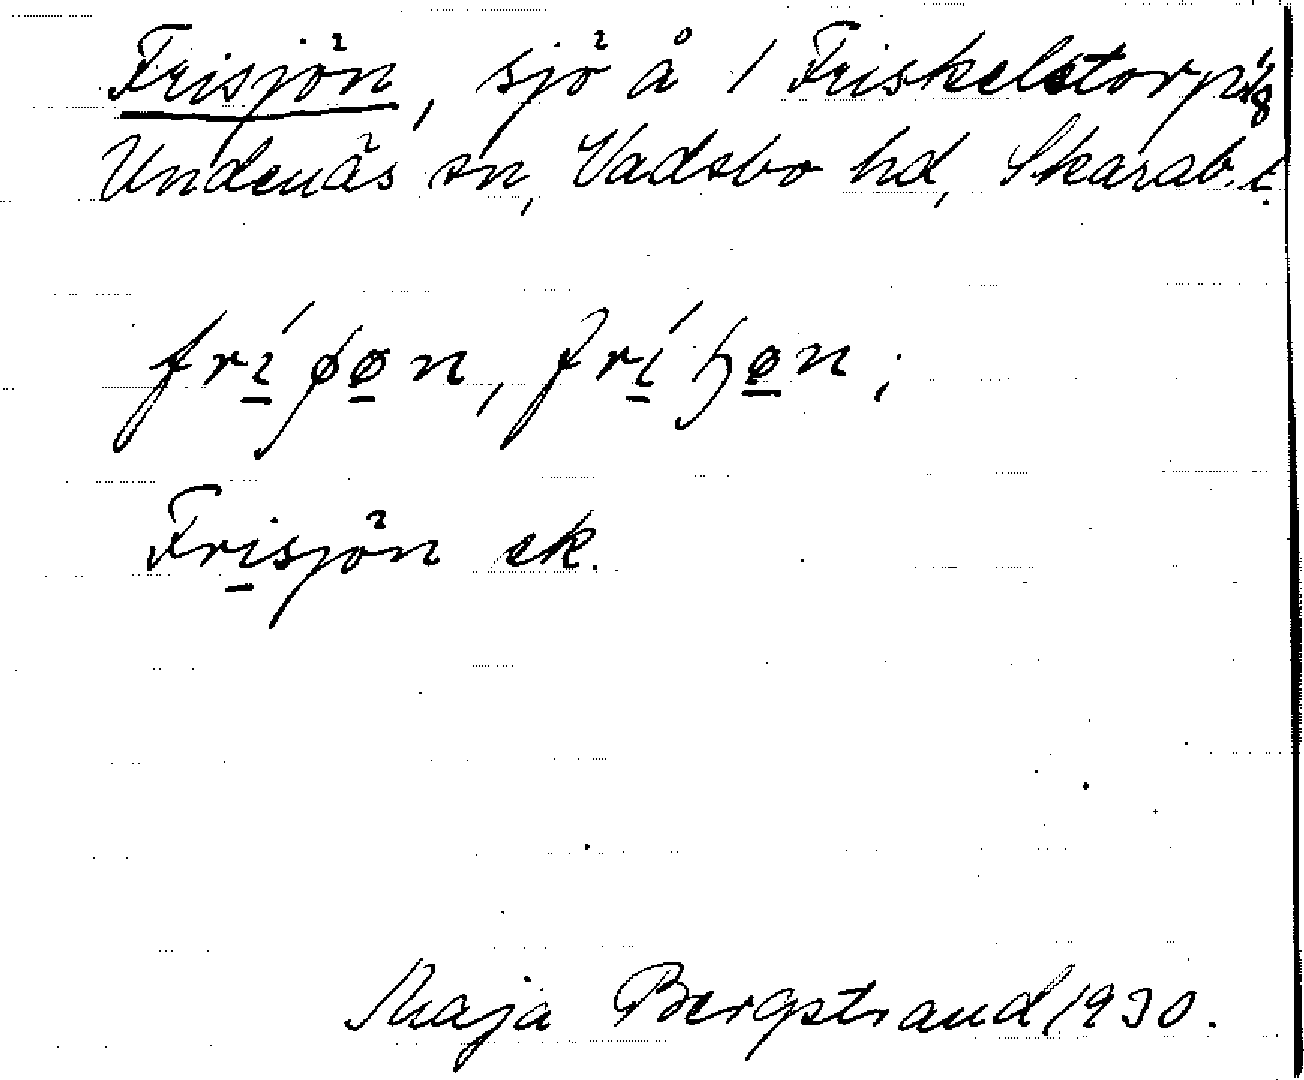 Frisjön, sjö å 1 Friskelstorp 1/8
Undenäs sn, Vadsbo hd, Skarab. l.
Frisjön ek.
Maja Bergstrand 1930.